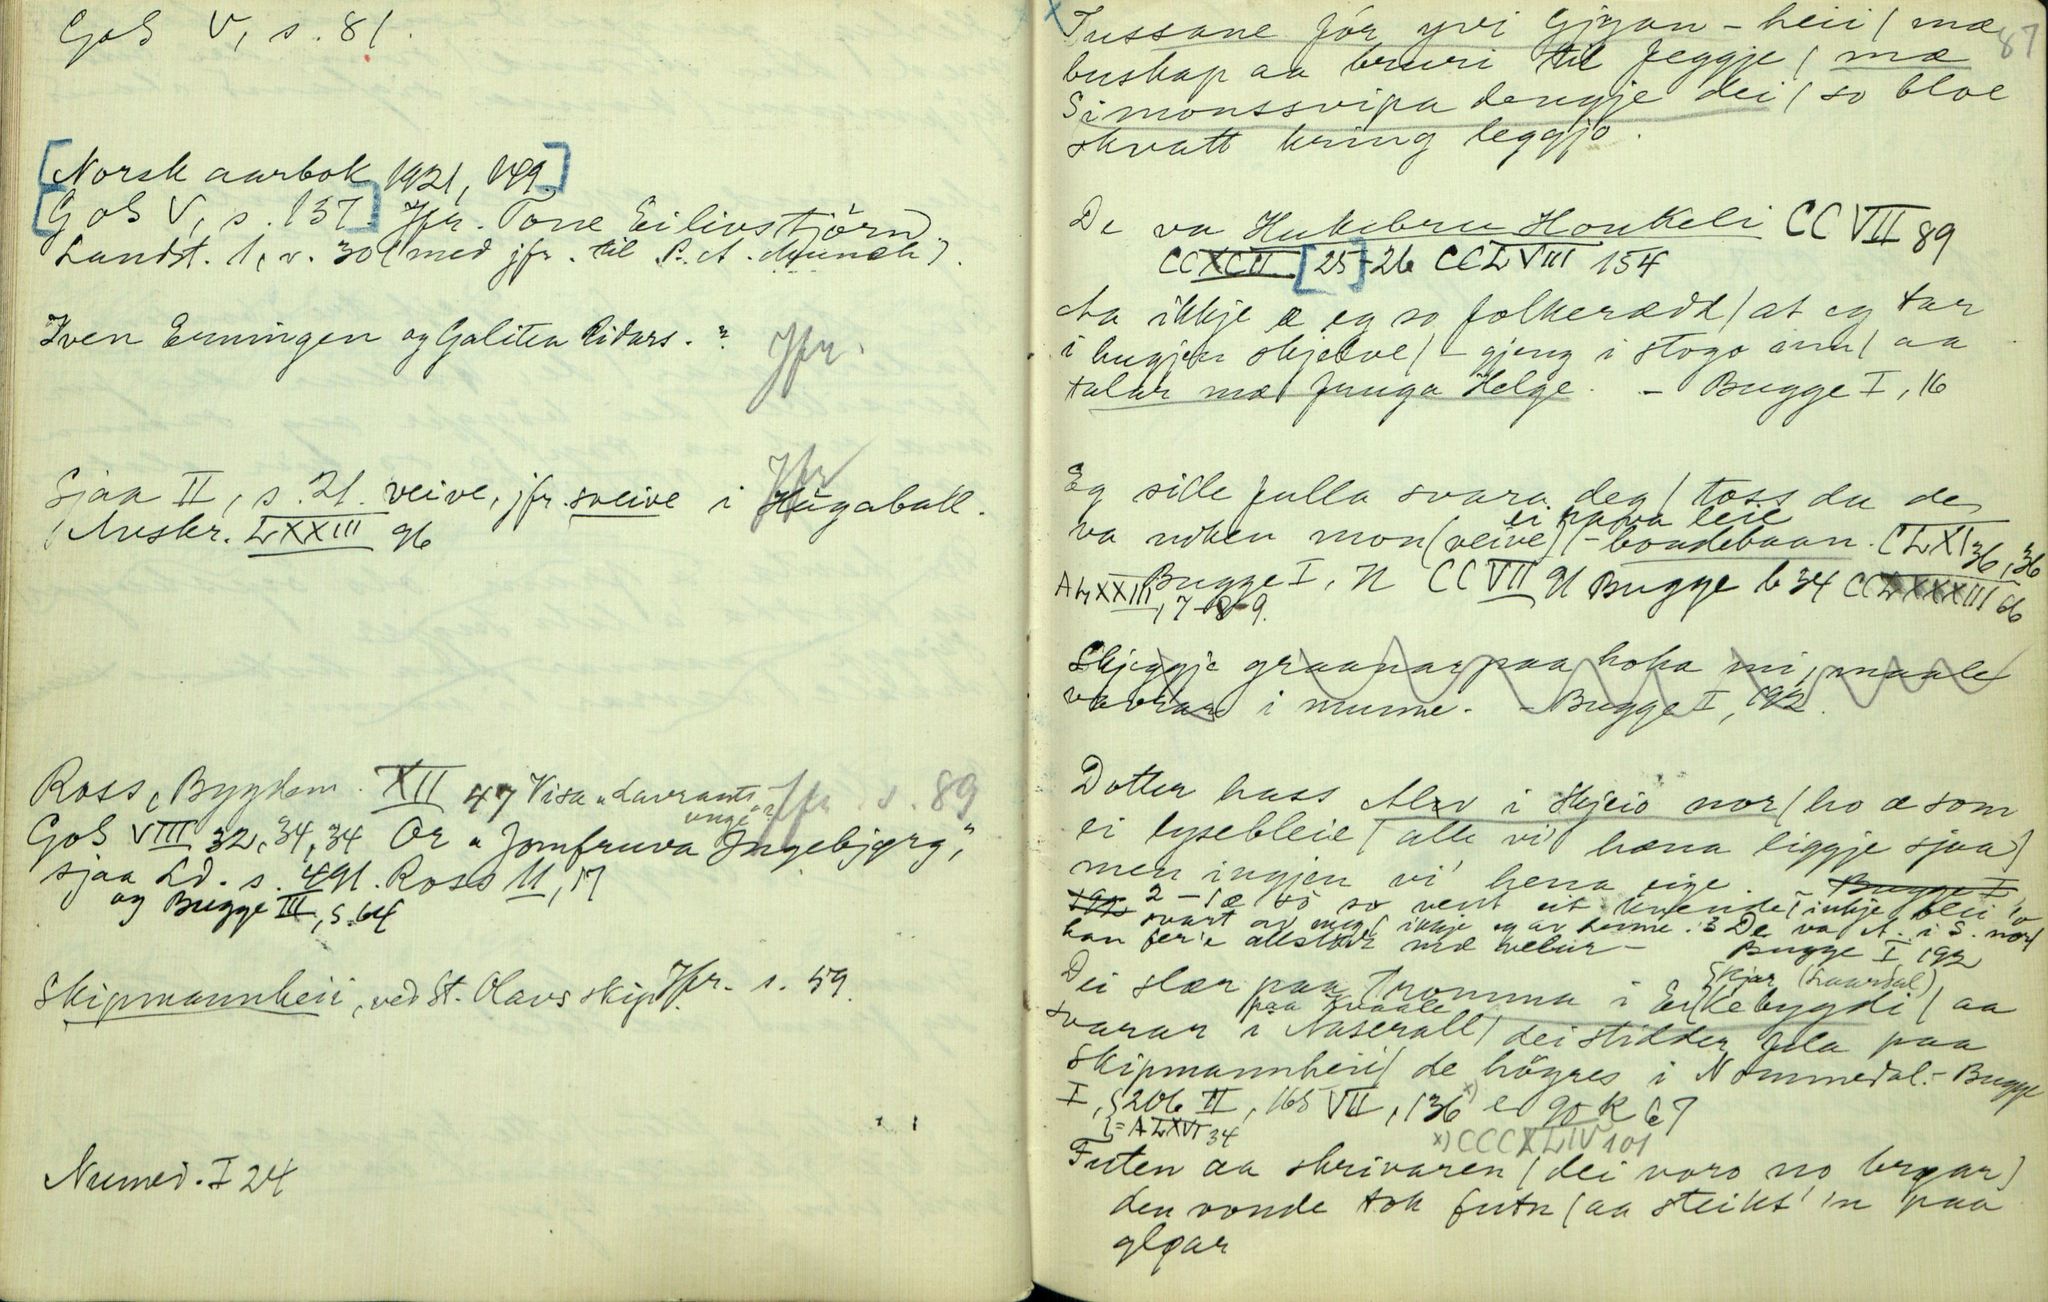 GoS V, s. 81.
[Norsk aarbok 1921, 149]
[GoS V, s. 137.] Jfr. Tone Eilivstjörn.
Landst. 1, v. 30 (med jfr. til P. A. Munch).
Iven Erningen og Galiten Ridars.
Jfr.
Sjaa II, s. 21. veive, jfr. sveive i Hugaball.
Avskr. LXXIII 96
Jfr
Ross, Bygdom. XII 47 Visa "Lavrants unge" Jfr. s. 89
GoS VIII 32, 34, 34 Or "Jomfruva Ingebjörg",
sjaa Ld. s. 491. Ross 11, 17
og Bugge III, s. 64
Skipmannheii, ved St. Olavs skip. Jfr. s. 59.
Numed. I 24
87
x Tussane fór yvi Gjyvn-heii / mæ
buskap aa bruri til feggje / mæ
Simonssvipa dengje dei / so bloe
skvatt kring leggjo.
De va Hukebru Houkeli CC VII 89
CCXCII [25]-26 CCLVIII 154
Aa ikkje æ eg so folkerædd / at eg tar
i hugjen skjelve / - gjeng i stogo inn / aa
talar mæ fruga Helge. - Bugge I, 16
Eg sille fulla svara deg / toss du de
va niken mon (veive) / - bondebaan. CLXI 36, 36
Bugge I, CC VII 91 Bugge b 34 CCLXXXIII 66
ALXXIII, 7-8-9.
Skjeggje graanar paa hoka mi, maale
i munne. - Bugge I, 192.
Dotter hass Alv i Skjeio nor / ho æ som
ei lysebleie / alle vi hæna liggje sjaa /
men ingjen vi hena eige. - Bugge I,
192 2 - so vent eit kvende / inkje blei
svart av meg / ikkje eg av henne. 3 De va A. i S. nor /
han fer'e allstår mæ velur - Bugge I, 192
Skjar (Laardal)
Dei slær paa tromma i Eikebygdi / aa
paa Kvaale
svarar i Naserall / dei stidder fela paa
Skipmannheii / de högres i Nommedal. - Bugge
I, 206 II, 165 VII, 136 x) e 90 K 67
= A LXVI 34
x) CCCXLIV 101
Futen aa skrivaren / dei voro no brgar /
den vonde tok futn / aa steikt'n paa
gløar